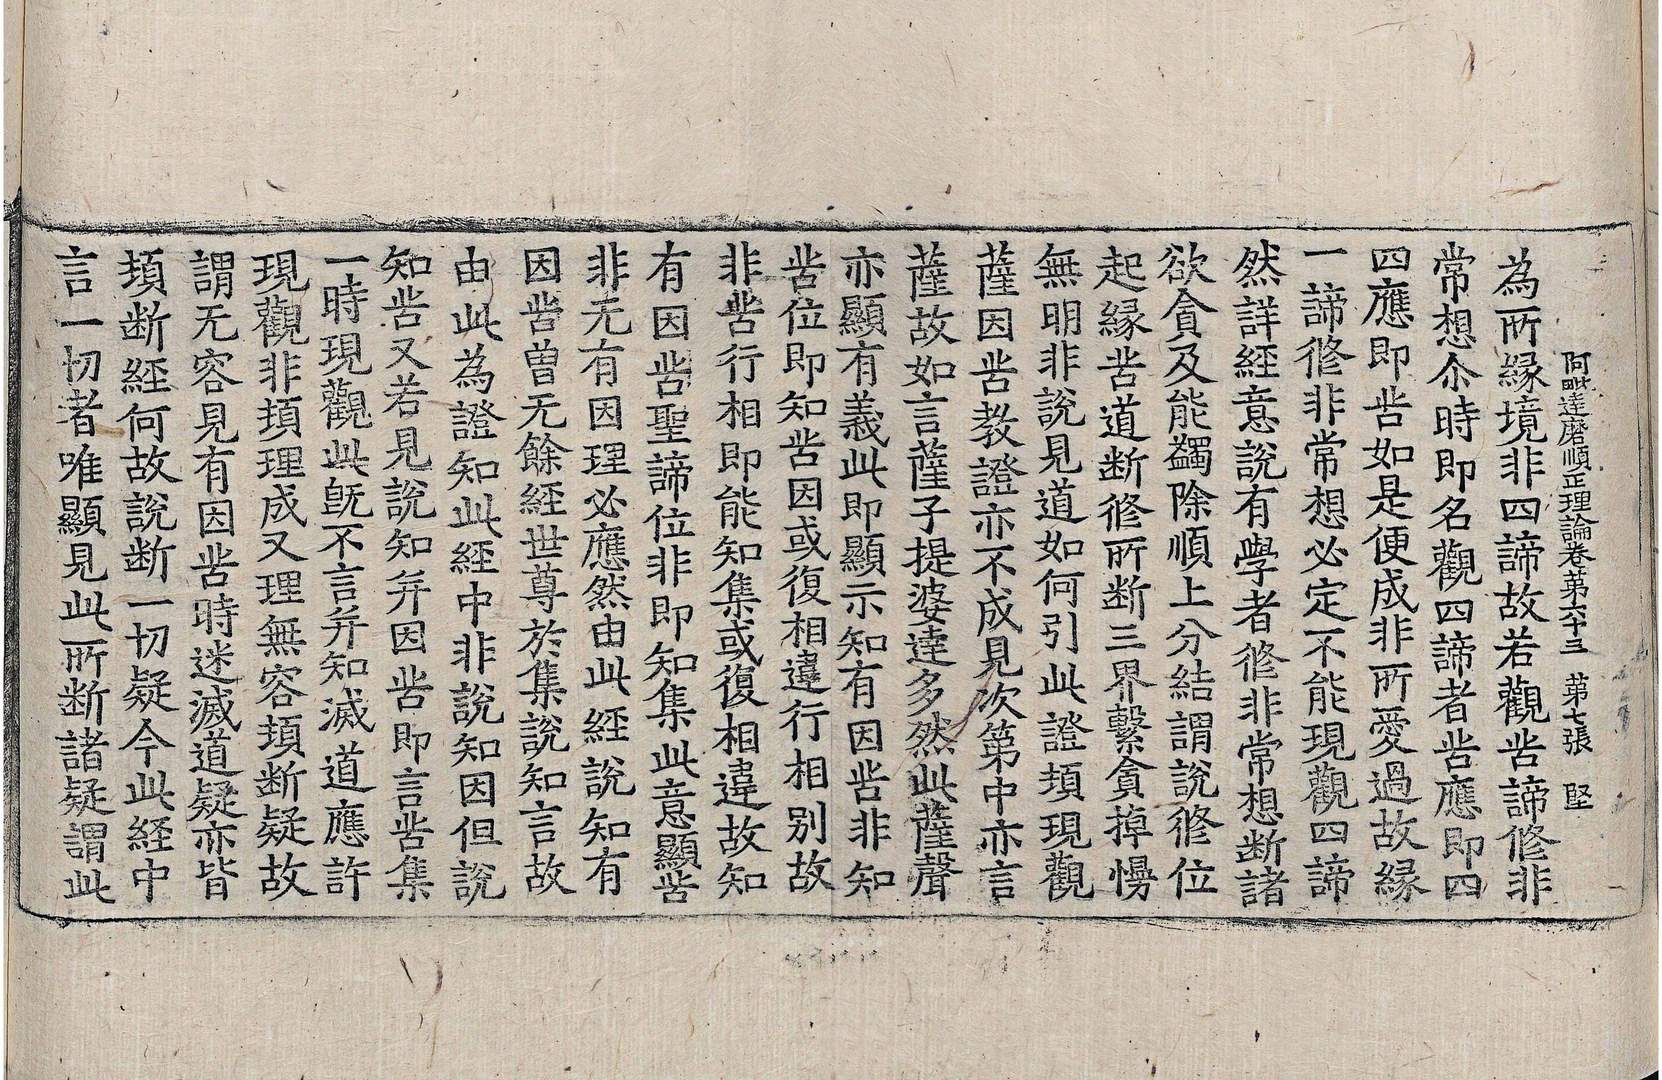 阿毗達磨順正理論卷第六十三　第七張　堅
為所緣境非四諦故若觀苦諦修非
常想尒時即名觀四諦者苦應即四
四應即苦如是便成非所愛過故緣
一諦修非常想必定不能現觀四諦
然詳經意說有學者修非常想断諸
欲貪及能蠲除順上分結謂說修位
起緣苦道断修所断三界繫貪掉慢
無明非說見道如何引此證頓現觀
薩因苦教證亦不成見次第中亦言
薩故如言薩子提婆達多然此薩聲
亦顯有義此即顯示知有因苦非知
苦位即知苦因或復相違行相別故
非苦行相即能知集或復相違故知
有因苦聖諦位非即知集此意顯苦
非无有因理必應然由此經說知有
因苦曾无餘經世尊於集說知言故
由此為證知此經中非說知因但說
知苦又若見說知并因苦即言苦集
一時現觀此既不言并知滅道應許
現觀非頓理成又理無容頓断疑故
謂无容見有因苦時迷滅道疑亦皆
頓断經何故說断一切疑今此經中
言一切者唯顯見此所断諸疑謂此